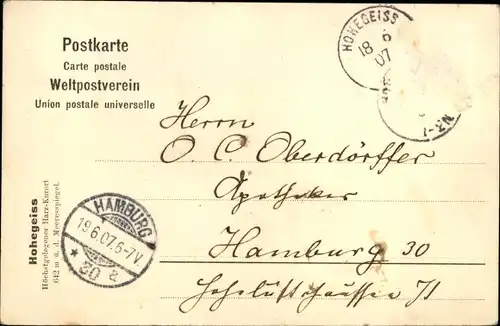 Postkarte
Carte postale
Weltpostverein
Union postale universelle
HOHEGEISS
18 6
07
7-8N
Herrn
O. C. Oberdörffer
Apotheker
Hamburg 30
Hoheluftchaussee 71
HAMBURG
19.6.07.6-7V
* 30 a
Hohegeiss
Höchstgelegener Harz-Kurort
642 m ü. d. Meeresspiegel.